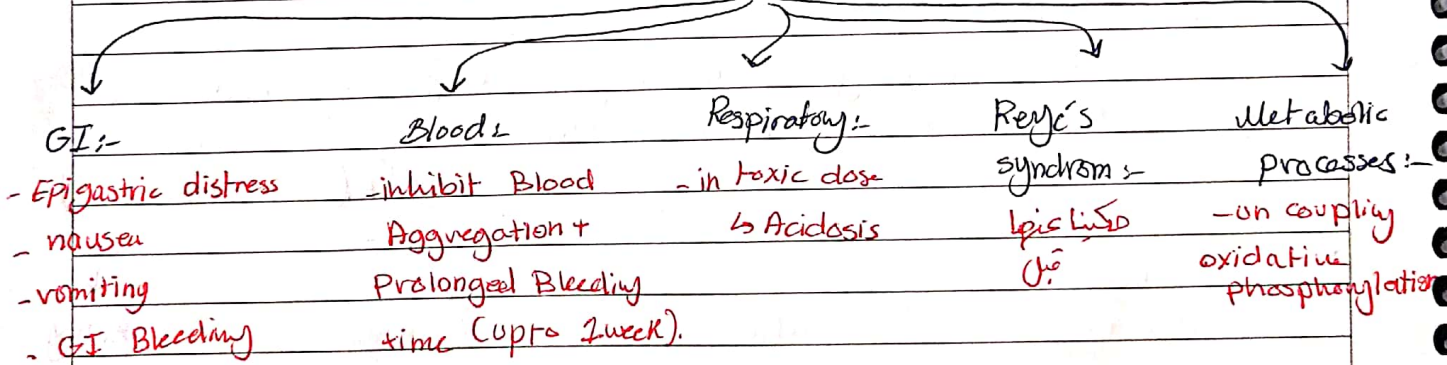 GI:-
- Epigastric distress
- nausea
- vomiting
- GI Bleeding
Blood:
- inhibit Blood
Aggregation +
Prolonged Bleeding
time (upto 1week).
Respiratory:-
- in toxic dose
↳ Acidosis
Reye's
syndrom:-
حكينا عنها
قبل
Metabolic
processes:-
- un coupling
oxidative
phosphorylation